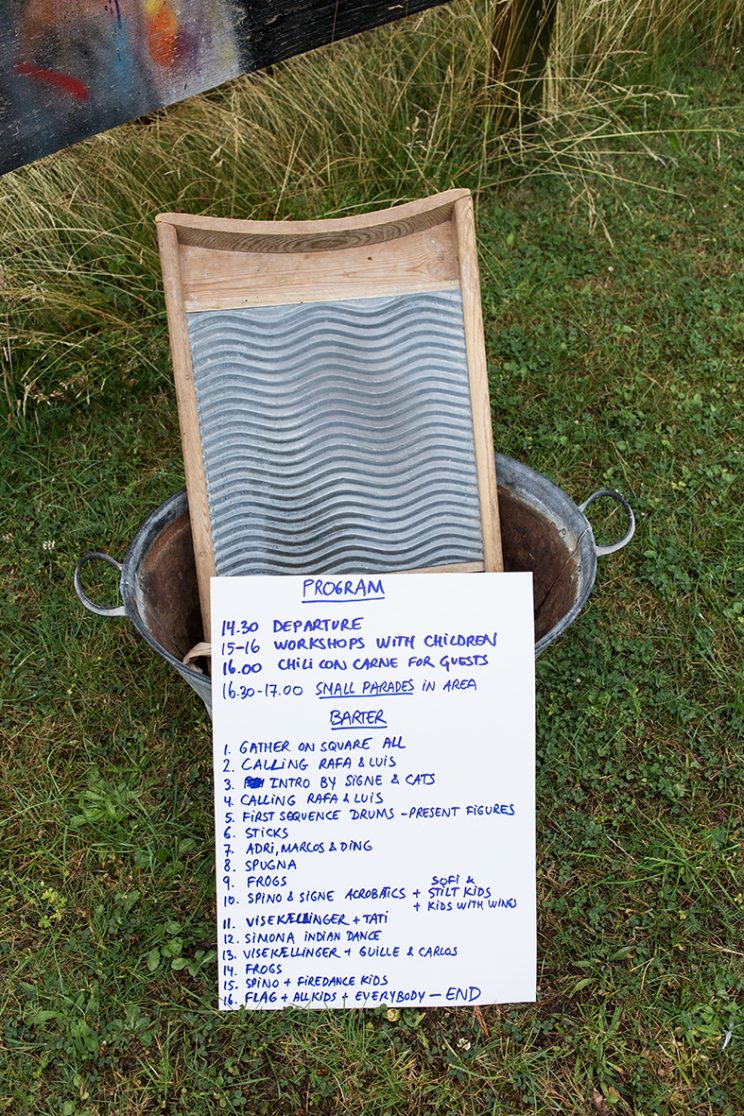 PROGRAM
14.30 DEPARTURE
15-16 WORKSHOPS WITH CHILDREN
16.00 CHILI CON CARNE FOR GUESTS
16.30-17.00 SMALL PARADES IN AREA
BARTER
1. GATHER ON SQUARE ALL
2. CALLING RAFA & LUIS
3. INTRO BY SIGNE & CATS
4. CALLING RAFA & LUIS
5. FIRST SEQUENCE DRUMS - PRESENT FIGURES
6. STICKS
7. ADRI, MARCOS & DING
8. SPUGNA
9. FROGS
10. SPINO & SIGNE ACROBATICS + SOFI & STILT KIDS
+ KIDS WITH WINGS
11. VISEKÆLLINGER + TATI
12. SIMONA INDIAN DANCE
13. VISEKÆLLINGER + GUILLE & CARLOS
14. FROGS
15. SPINO + FIREDANCE KIDS
16. FLAG + ALL KIDS + EVERYBODY - END